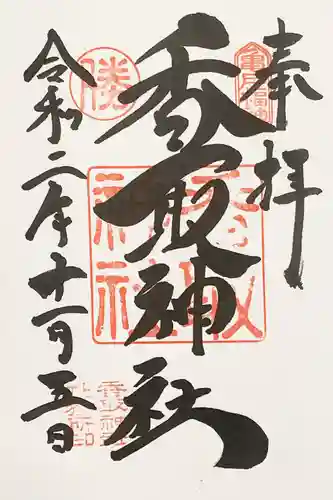 奉拝
香取神社
令和二年十一月五日
勝
香取神社